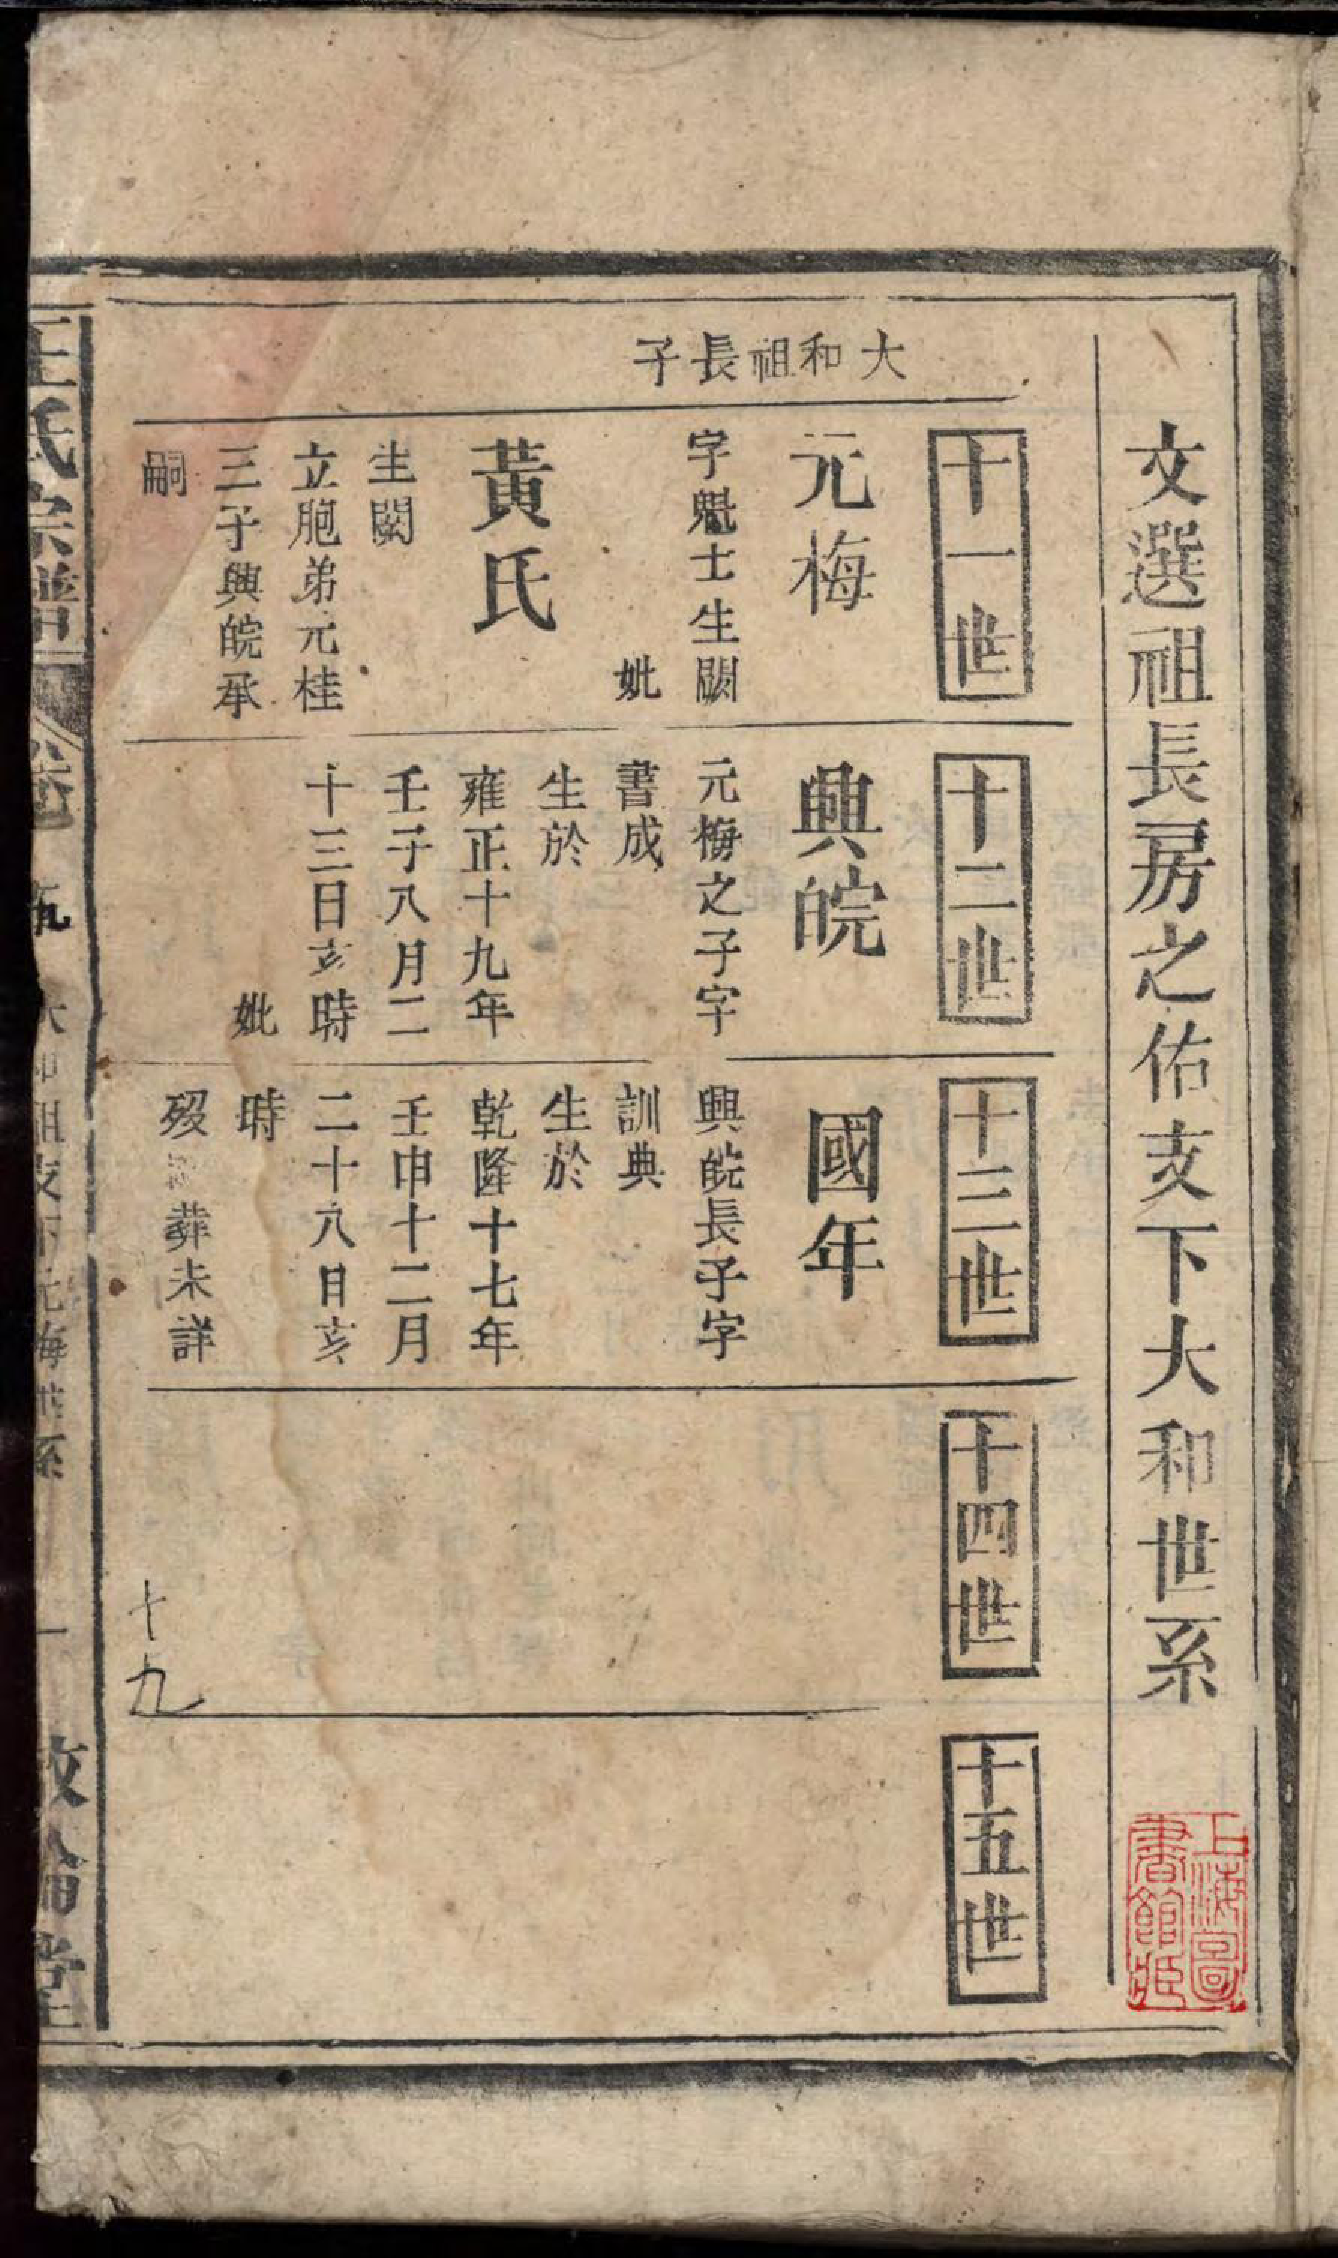 文選祖長房之佑支下大和世系
上海圖
書館藏
大和祖長子
十一世
元梅
字魁士生闕
妣
黃氏
生闕
立胞弟元桂
三子興皖承
嗣
十二世
興皖
元梅之子字
書成
生於
雍正十九年
壬子八月二
十三日亥時
妣
十三世
國年
興皖長子字
訓典
生於
乾隆十七年
壬申十二月
二十八日亥
時
歿葬未詳
十四世
十五世
十九
王氏宗譜
卷五
大和祖支下元梅世系
一
敦倫堂